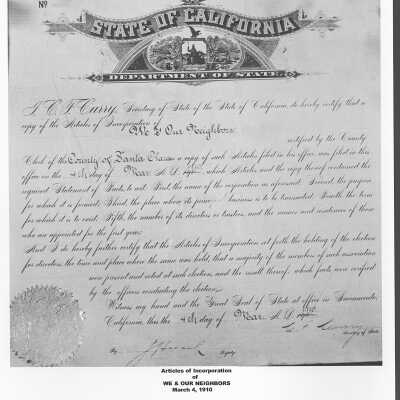 No
STATE OF CALIFORNIA
DEPARTMENT OF STATE.
I, C. F. Curry, Secretary of State of the State of California, do hereby certify that a
copy of the Articles of Incorporation of
We & Our Neighbors
certified by the County
Clerk of the County of Santa Clara as a copy of such Articles filed in his office, was filed in this
office on the 4th day of Mar. A. D. which Articles and the copy thereof contained the
required Statement of Facts, to wit: First, the name of the corporation as aforesaid. Second, the purpose
for which it is formed. Third, the place where its principal business is to be transacted. Fourth, the term
for which it is to exist. Fifth, the number of its directors or trustees, and the names and residences of those
who are appointed for the first year.
And I do hereby further certify that the Articles of Incorporation set forth the holding of the election
for directors, the time and place where the same was held, that a majority of the members of such association
were present and voted at such election, and the result thereof; which facts were verified
by the officers conducting the election.
Witness my hand and the Great Seal of State at office in Sacramento,
California, this the 4th day of Mar. A. D. 1910
C. F. Curry
Secretary of State
By Deputy
Articles of Incorporation
of
WE & OUR NEIGHBORS
March 4, 1910